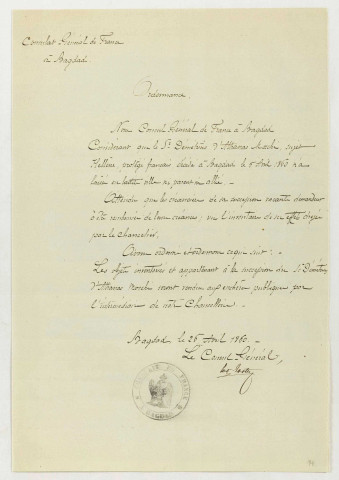 Consulat Général de France
à Bagdad
Ordonnance
Nous Consul Général de France à Bagdad
Considérant que le Sr. Démétrius d'Athanas sujet
Hellène, protégé français décédé à Bagdad le 8 Avril 1860 n'a
laissé en cette ville ni parent ni allié.
Attendu que les créanciers de sa succession vacante demandent
à être remboursés de leurs créances; vu l'inventaire de ses effets dressé
par le Chancelier,
Avons ordonné et ordonnons ce qui suit:
Les objets inventoriés et appartenant à la succession du Sr. Démétrius
d'Athanas seront vendus aux enchères publiques par
l'intermédiaire de notre Chancellerie.
Bagdad le 26 Avril 1860.
Le Consul Général,